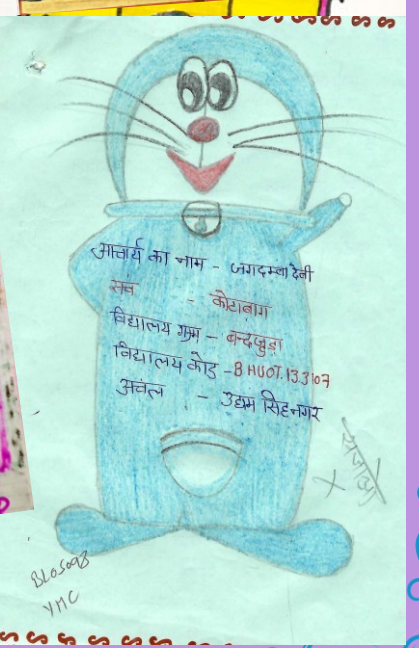 आचार्य का नाम - जगदम्बा देवी
संच - कोटाबाग
विद्यालय ग्राम - बन्दजुड़ा
विद्यालय कोड - BHUOT.133107
अंचल - उद्यम सिंह नगर
सजाओ
X
BLOSO98
YMC